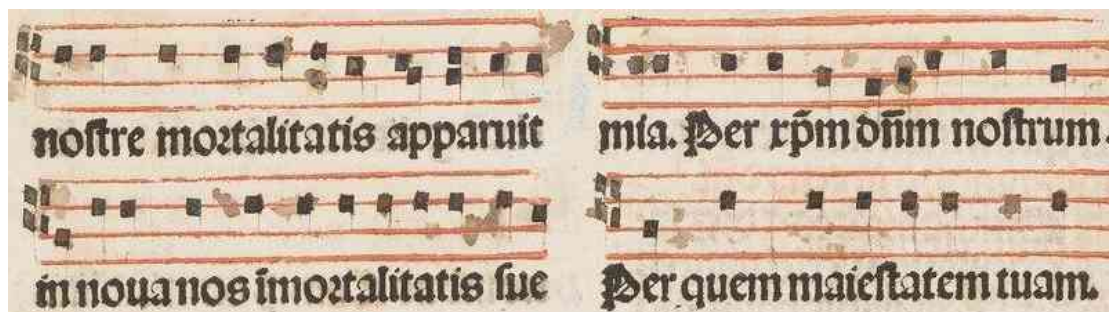 noſtre mortalitatis apparuit
in noua nos īmortalitatis ſue
mia. Per xp̄m dn̄m noſtrum.
Per quem maieſtatem tuam.